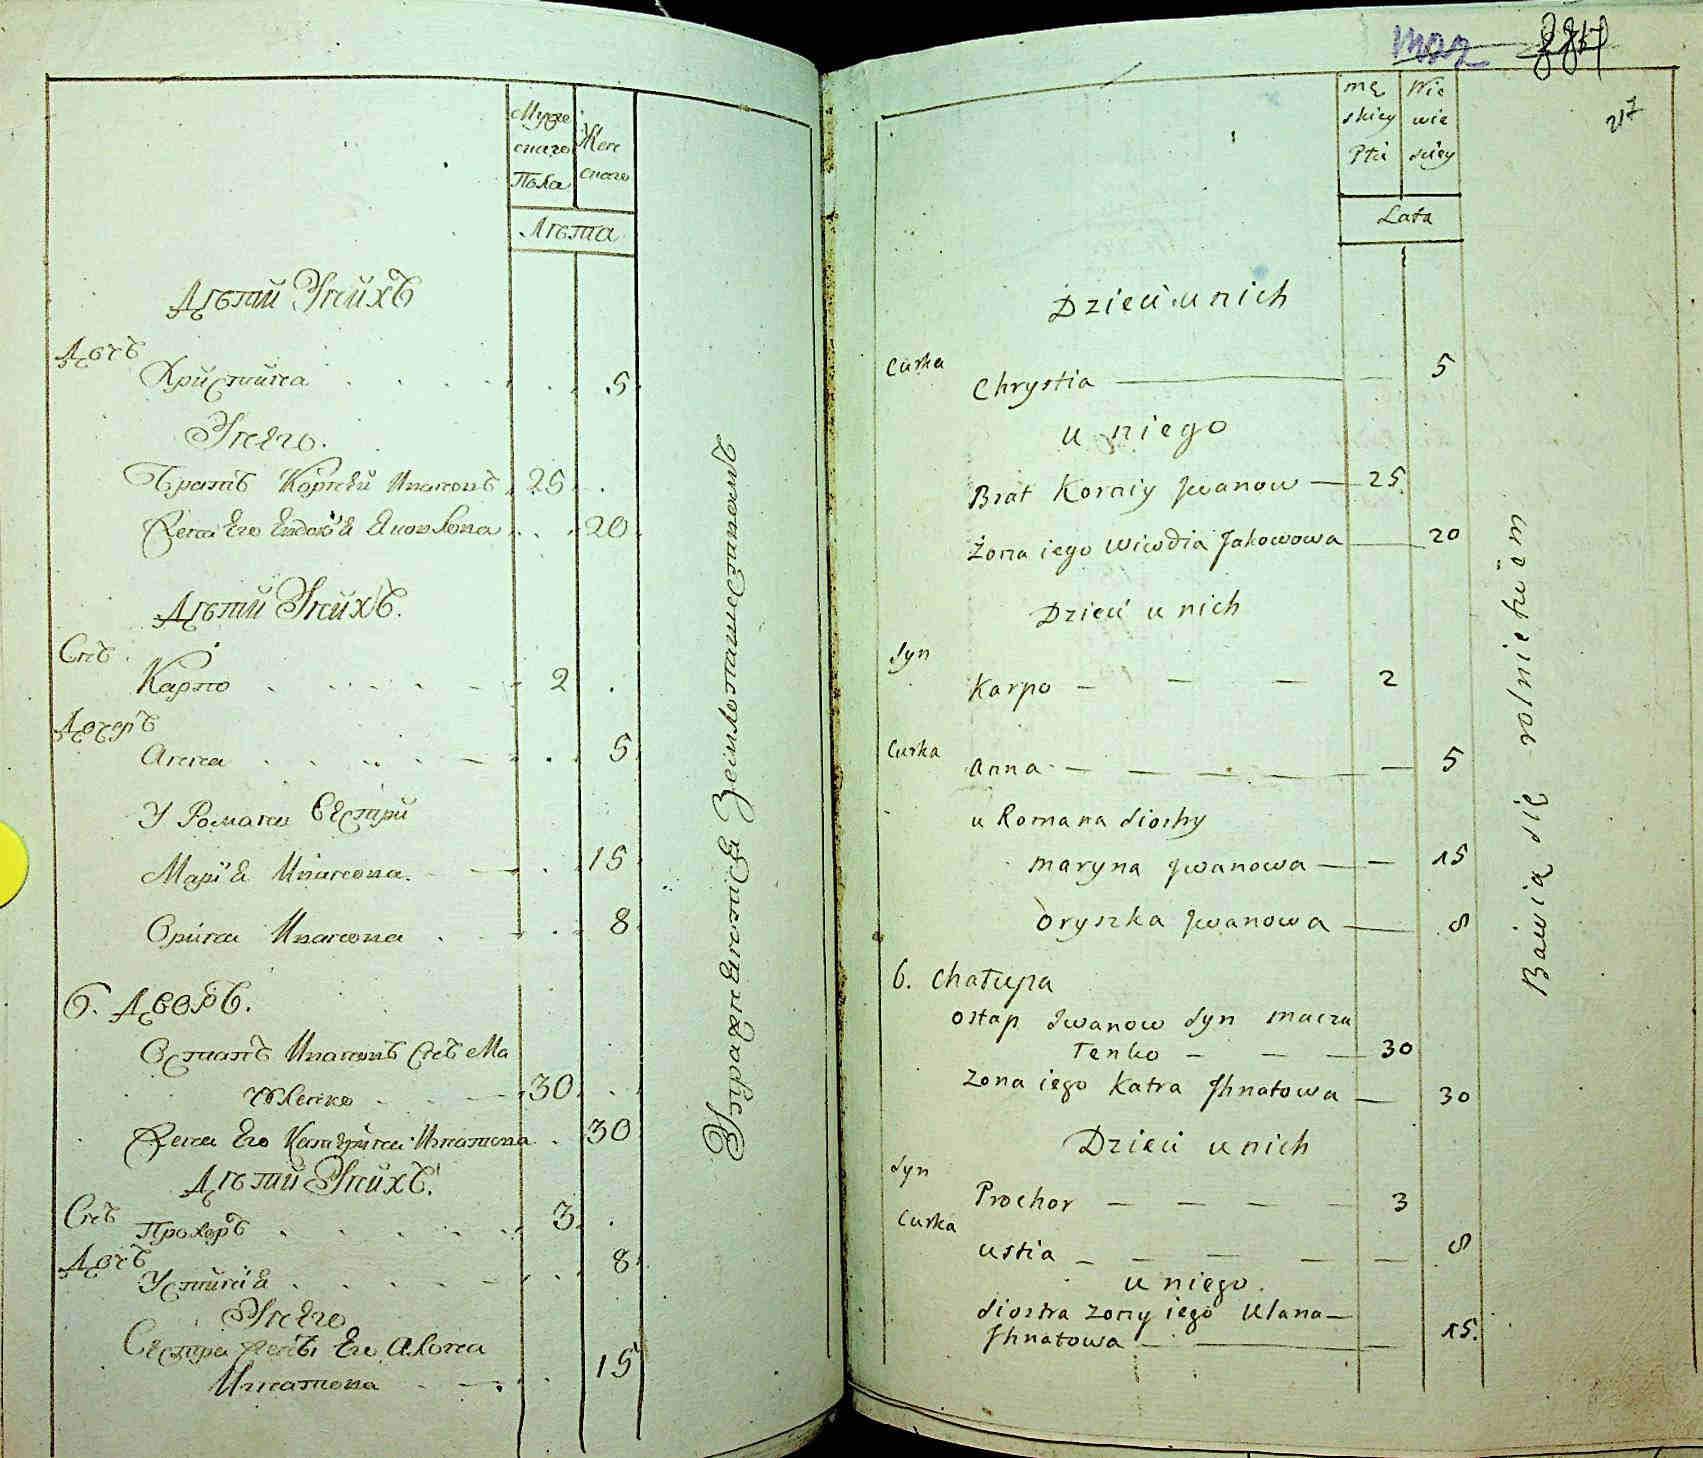 Мужескаго Пола
Женскаго
Лѣта
Дѣти Уних
Дочь
Християна 5
Унего.
Братъ Корней Ивановъ 25
Жена Его Евдокія Яковлева 20
Дѣти Унихъ.
Снъ
Карпо 2
Дочеръ
Анна 5
У Романа Сестри
Марія Иванова. 15
Орина Иванова 8
6. Дворъ.
Остапъ Ивановъ Снъ Ма
30
Жена Его Катерина Игнатова 30
Дѣти Унихъ.
Снъ
Прохоръ 3
Дочь
Устинія 8
Унего
Сестра жены Его Алона
Игнатова 15
Упражняются Земледелием
męskiey Płci
Niewieściey
Lata
217
Dzieci u nich
Curka
Chrystia 5
u niego
Brat Korniy Jwanow 25
Żona iego Wiwdia Jakowowa 20
Dzieci u nich
Syn
Karpo 2
Curka
Anna 5
u Romana Siostry
Maryna Jwanowa 15
Oryszka Jwanowa 8
6. Chałupa
Ostap Jwanow Syn Macza
Tenko 30
Zona iego Katra Jhnatowa 30
Dzieci u nich
Syn
Prochor 3
Curka
Ustia 8
u niego.
Siostra Zony iego Ulana
Jhnatowa 15.
Bawią się rolnictwem